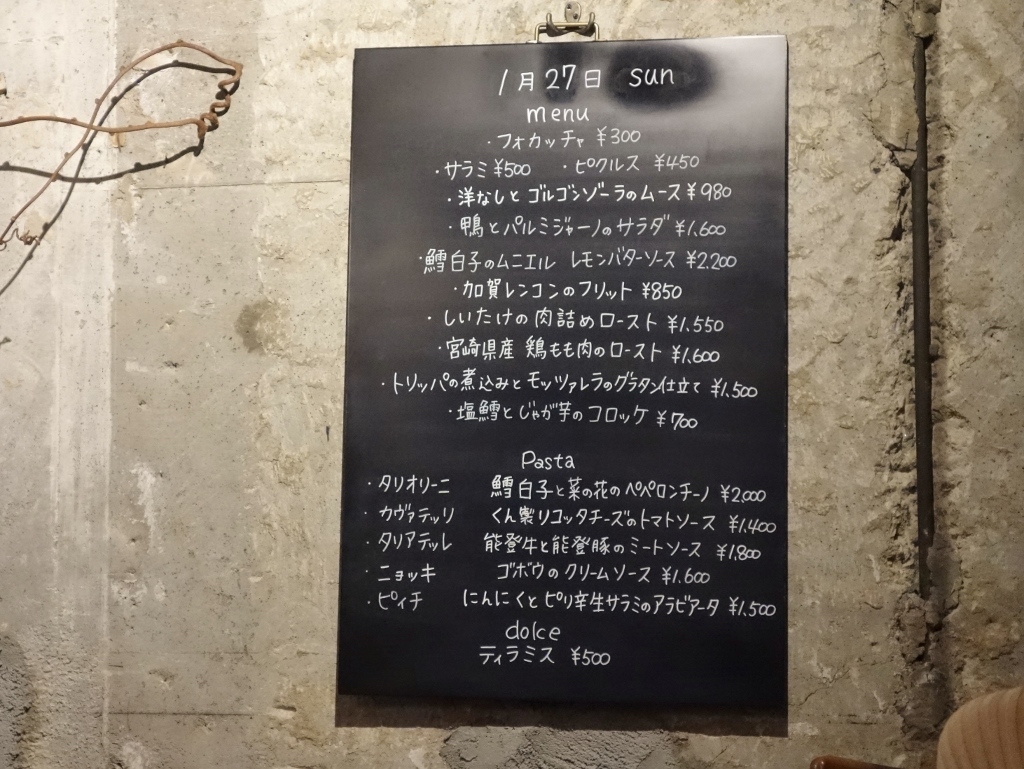 1月27日 sun
menu
・フォカッチャ ¥300
・サラミ ¥500 ・ピクルス ¥450
・洋なしとゴルゴンゾーラのムース ¥980
・鴨とパルミジャーノのサラダ ¥1.600
・鱈白子のムニエル レモンバターソース ¥2.200
・加賀レンコンのフリット ¥850
・しいたけの肉詰めロースト ¥1.550
・宮崎県産 鶏もも肉のロースト ¥1.600
・トリッパの煮込みとモッツァレラのグラタン仕立て ¥1.500
・塩鱈とじゃが芋のコロッケ ¥700
Pasta
・タリオリーニ 鱈白子と菜の花のペペロンチーノ ¥2.000
・カヴァテッリ くん製リコッタチーズのトマトソース ¥1.400
・タリアテッレ 能登牛と能登豚のミートソース ¥1.800
・ニョッキ ゴボウのクリームソース ¥1.600
・ピィチ にんにくとピリ辛生サラミのアラビアータ ¥1.500
dolce
ティラミス ¥500